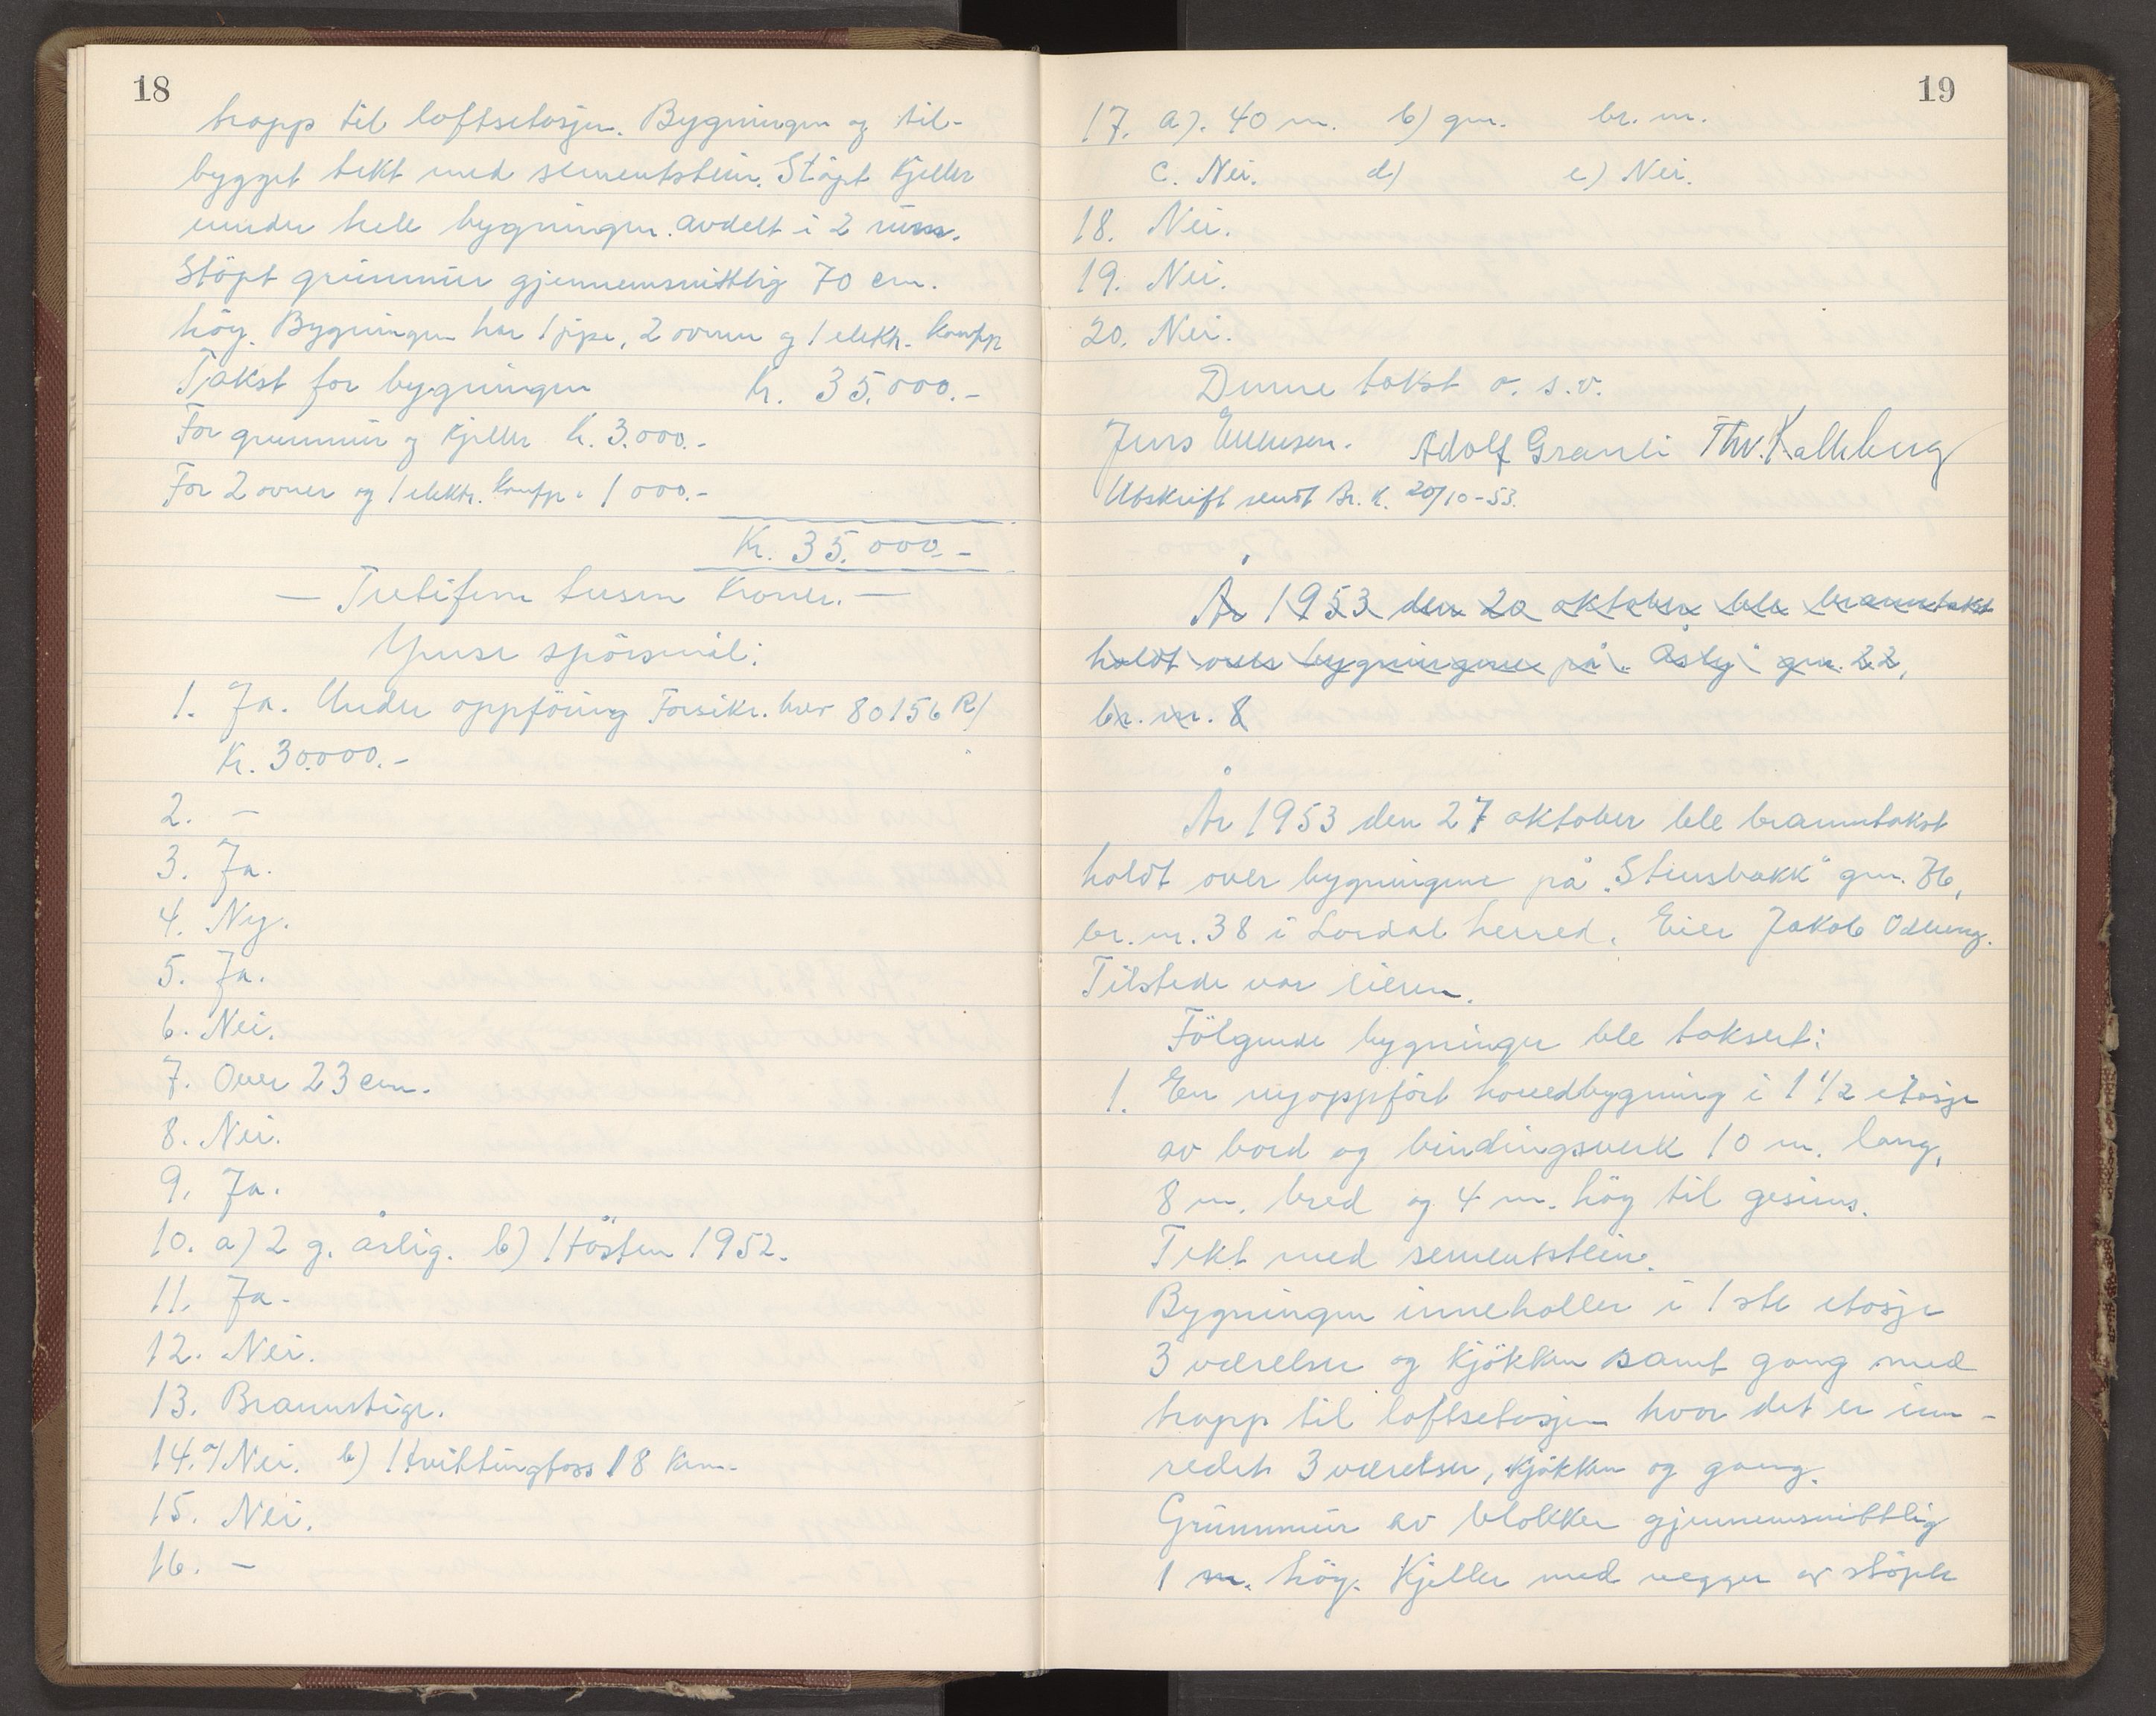 18
trapp til loftsetasjen. Bygningen og til-
bygget tekt med sementstein. Støpt kjeller
under hele bygningen avdelt i 2 rum.
Støpt grunnmur gjennemsnittlig 70 cm.
høy. Bygningen har 1 pipe, 2 ovner og 1 elektr. komfyr
Takst for bygningen Kr. 35.000.-
For grunnmur og kjeller Kr. 3.000.-
For 2 ovner og 1 elektr. komfyr " 1000.-
Kr. 35.000.-
— Tretifem tusen kroner. —
Ymse spörsmål:
1. Ja. Under oppföring Forsikr. brev 80156 R/
Kr. 30.000.-
2. -
3. Ja.
4. Ny.
5. Ja.
6. Nei.
7. Over 23 cm.
8. Nei.
9. Ja.
10. a) 2 g. årlig. b) Hösten 1952.
11. Ja.
12. Nei.
13. Brannstige.
14. a/ Nei. b) Hvittingfoss 18 km.
15. Nei.
16. -
19
17. a). 40 m. b) gnr. br. nr.
c. Nei. d) e) Nei.
18. Nei.
19. Nei.
20. Nei.
Denne takst o. s. v.
Jens Ellefsen. Adolf Granli Thv. Kalleberg
Utskrift sendt Br. K. 20/10-53.
År 1953 den 20 oktober ble branntakst
holdt over bygningene på "Åsly" gnr. 22,
br. nr. 8
År 1953 den 27 oktober ble branntakst
holdt over bygningene på "Stensbakk" gnr. 76,
br. nr. 38 i Lardal herred. Eier Jakob Odberg.
Tilstede var eieren.
Fölgende bygninger ble taksert:
1. En nyoppfört hovedbygning i 1 1/2 etasje
av bord og bindingsverk 10 m. lang,
8 m. bred og 4 m. höy til gesims.
Tekt med sementstein.
Bygningen inneholler i 1ste etasje
3 værelser og kjökken samt gang med
trapp til loftsetasjen hvor det er inn-
redet 3 værelser, kjökken og gang.
Grunnmur av blokker gjennemsnittlig
1 m. höy. Kjeller med vegger av støpte